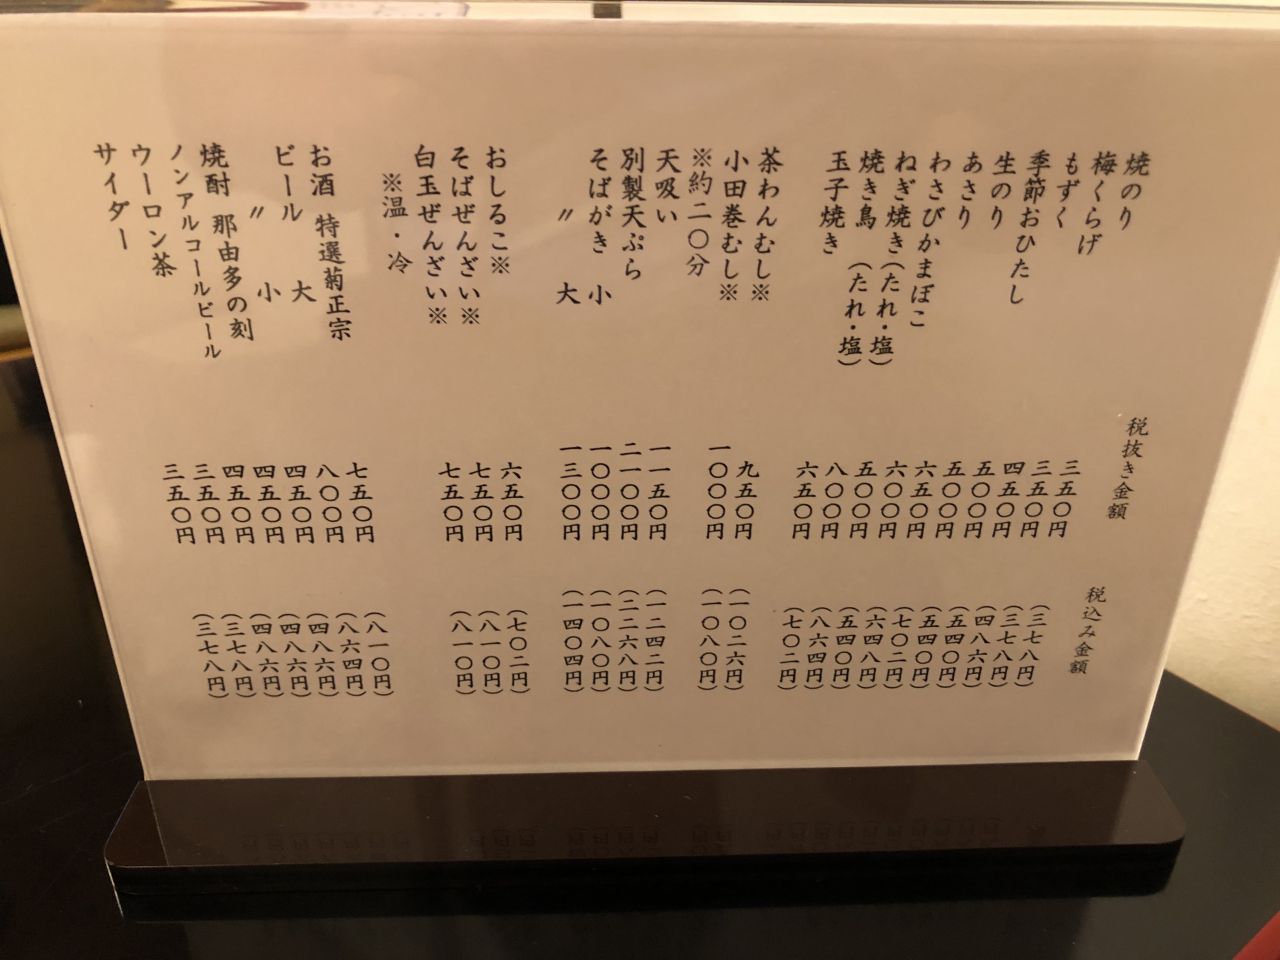 税抜き金額 税込み金額
焼のり 三五〇円 (三七八円)
梅くらげ 三五〇円 (三七八円)
もずく 四五〇円 (四八六円)
季節おひたし 五〇〇円 (五四〇円)
生のり 五〇〇円 (五四〇円)
あさり 六五〇円 (七〇二円)
わさびかまぼこ 六〇〇円 (六四八円)
ねぎ焼き(たれ・塩) 五〇〇円 (五四〇円)
焼き鳥(たれ・塩) 八〇〇円 (八六四円)
玉子焼き 六五〇円 (七〇二円)
茶わんむし※ 九五〇円 (一〇二六円)
小田巻むし※ 一〇〇〇円 (一〇八〇円)
※約二〇分
天吸い 一一五〇円 (一二四二円)
別製天ぷら 二一〇〇円 (二二六八円)
そばがき 小 一〇〇〇円 (一〇八〇円)
〃 大 一三〇〇円 (一四〇四円)
おしるこ※ 六五〇円 (七〇二円)
そばぜんざい※ 七五〇円 (八一〇円)
白玉ぜんざい※ 七五〇円 (八一〇円)
※温・冷
お酒 特選菊正宗 七五〇円 (八一〇円)
ビール 大 八〇〇円 (八六四円)
〃 小 四五〇円 (四八六円)
焼酎 那由多の刻 四五〇円 (四八六円)
ノンアルコールビール 四五〇円 (四八六円)
ウーロン茶 三五〇円 (三七八円)
サイダー 三五〇円 (三七八円)